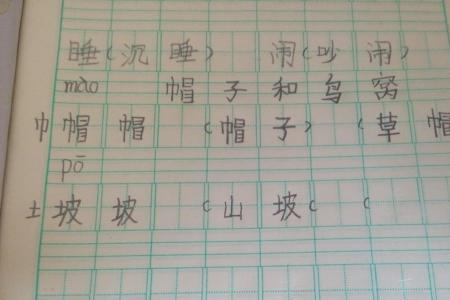 睡（沉睡） 闹（吵闹）
mào 帽子和鸟窝
巾 帽 帽 （帽子）（草帽
pō
土 坡 坡 （山坡（ （